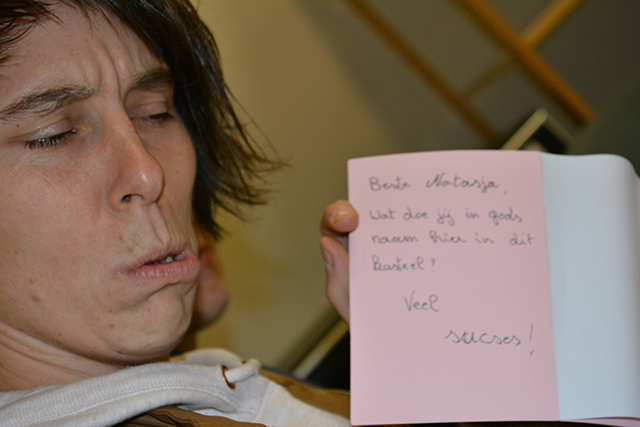 Beste Natasja,
Wat doe jij in gods
naam hier in dit
kasteel?
Veel
sucses!